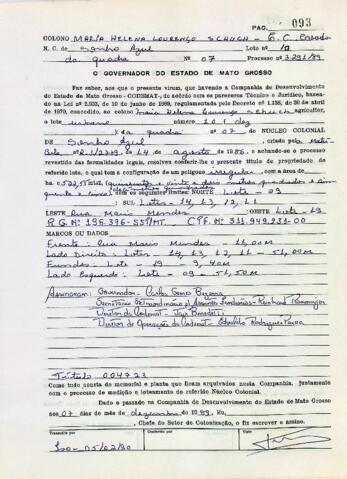 PAG. 093
COLONO MARIA HELENA LOURENÇO SCHUCH - E. C. Casada
N. C. de Sonho Azul Lote nº 10
da quadra Nº 07 Processo nº 3.291/89
O GOVERNADOR DO ESTADO DE MATO GROSSO
Faz saber, aos que o presente virem, que havendo a Companhia de Desenvolvimento
do Estado de Mato Grosso - CODEMAT, de acordo com os pareceres Técnico e Jurídico, basea-
do na Lei nº
regulamentada pelo Decreto nº 1.138, de
de 1970, concedido, ao colono Maria Helena Lourenço Schuch agricultor,
o lote urbano 10 (dez)
da quadra nº 07 do NÚCLEO COLONIAL
DE Sonho Azul, criado pela
de 14 de agosto de 1986, e achando-se o processo
revestido das formalidades legais, resolveu conferir-lhe o presente título de propriedade do
referido lote, o qual tem a configuração de um polígono irregular, com a área de
ha 522,55 m2 (quinhentos e vinte e dois metros quadrados e cin-
quenta e cinco) NORTE Lote - 09
SUL Lotes - 14, 13, 12, 11
LESTE Rua Mario Mendes OESTE Lote - 19
R.G. Nº 196.396-SSP/MT. C.P.F. Nº 311.949.231-00
MARCOS OU DADOS
Frente: Rua Mario Mendes - 11,00M
Lado Direito: Lotes - 14, 13, 12, 11 - 51,00M
Fundos: Lote - 19 - 9,40M
Lado Esquerdo: Lote - 09 - 51,50M
Assinaram: Governador - Carlos Gomes Bezerra
Secretário Extraordinário p/ Assuntos Fundiários -
Diretor da Codemat -
Diretor de Operações da Codemat -
Título 004723
Como tudo consta do memorial e planta que ficam arquivados nesta Companhia, juntamente
com o processo de medição e loteamento do referido Núcleo Colonial.
Dado e passado na Companhia de Desenvolvimento do Estado de Mato Grosso
aos 07 dias do mês de dezembro de 1989. Eu,
, Chefe do Setor de Colonização, o fiz escrever e assino.
Transcrito por
Conferido por
Visto